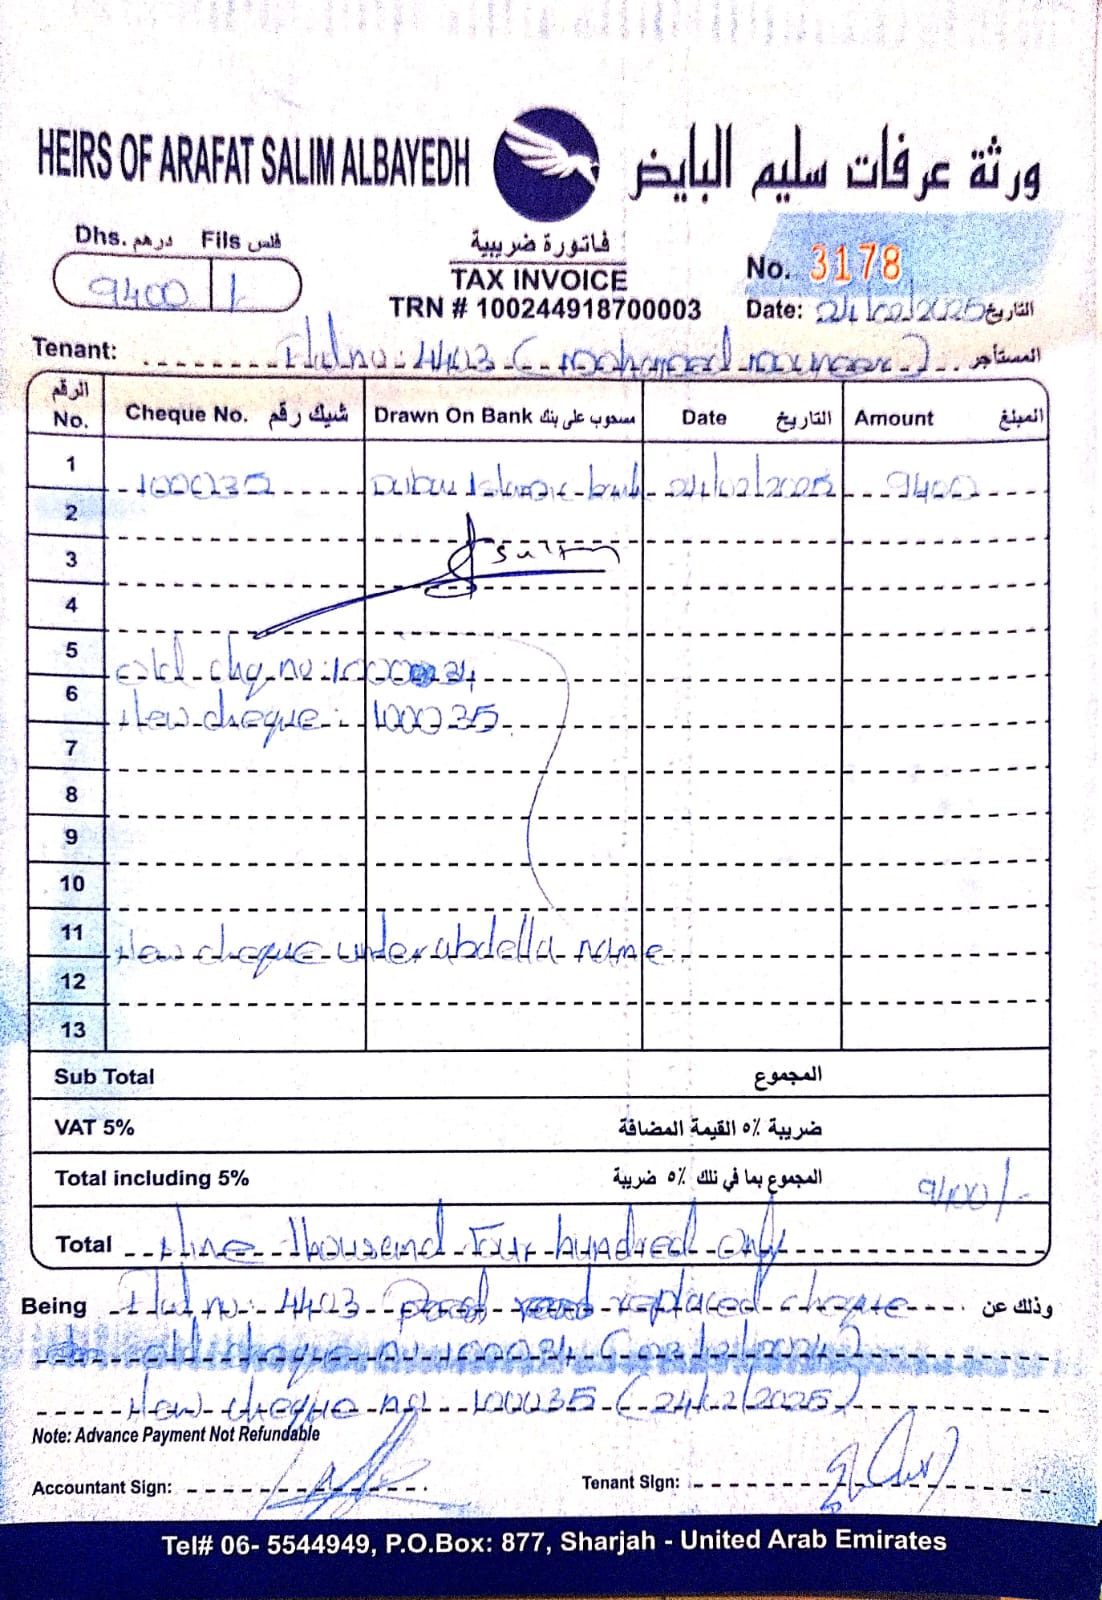 HEIRS OF ARAFAT SALIM ALBAYEDH ورثة عرفات سليم البايض
Dhs. درهم Fils فلس
9400 /-
فاتورة ضريبية
TAX INVOICE
TRN # 100244918700003
No. 3178
Date: 24/02/2025 التاريخ
Tenant: Flat no: 4403 (mohamed muneer) المستأجر
الرقم No. Cheque No. شيك رقم Drawn On Bank مسحوب على بنك Date التاريخ Amount المبلغ
1 100035 Dubai Islamic bank 24/02/2025 9400
2
3
4
5 old chq no: 100034
6 New cheque: 100035
7
8
9
10
11 New cheque under abdella name
12
13
Sub Total المجموع
VAT 5% ضريبة ٥٪ القيمة المضافة
Total including 5% المجموع بما في ذلك ٥٪ ضريبة 9400/-
Total Nine Thousand Four hundred only
Being Flat no: 4403 replaced cheque وذلك عن
old cheque no: 100034
New cheque no: 100035 (24/2/2025)
Note: Advance Payment Not Refundable
Accountant Sign: Tenant Sign:
Tel# 06- 5544949, P.O.Box: 877, Sharjah - United Arab Emirates